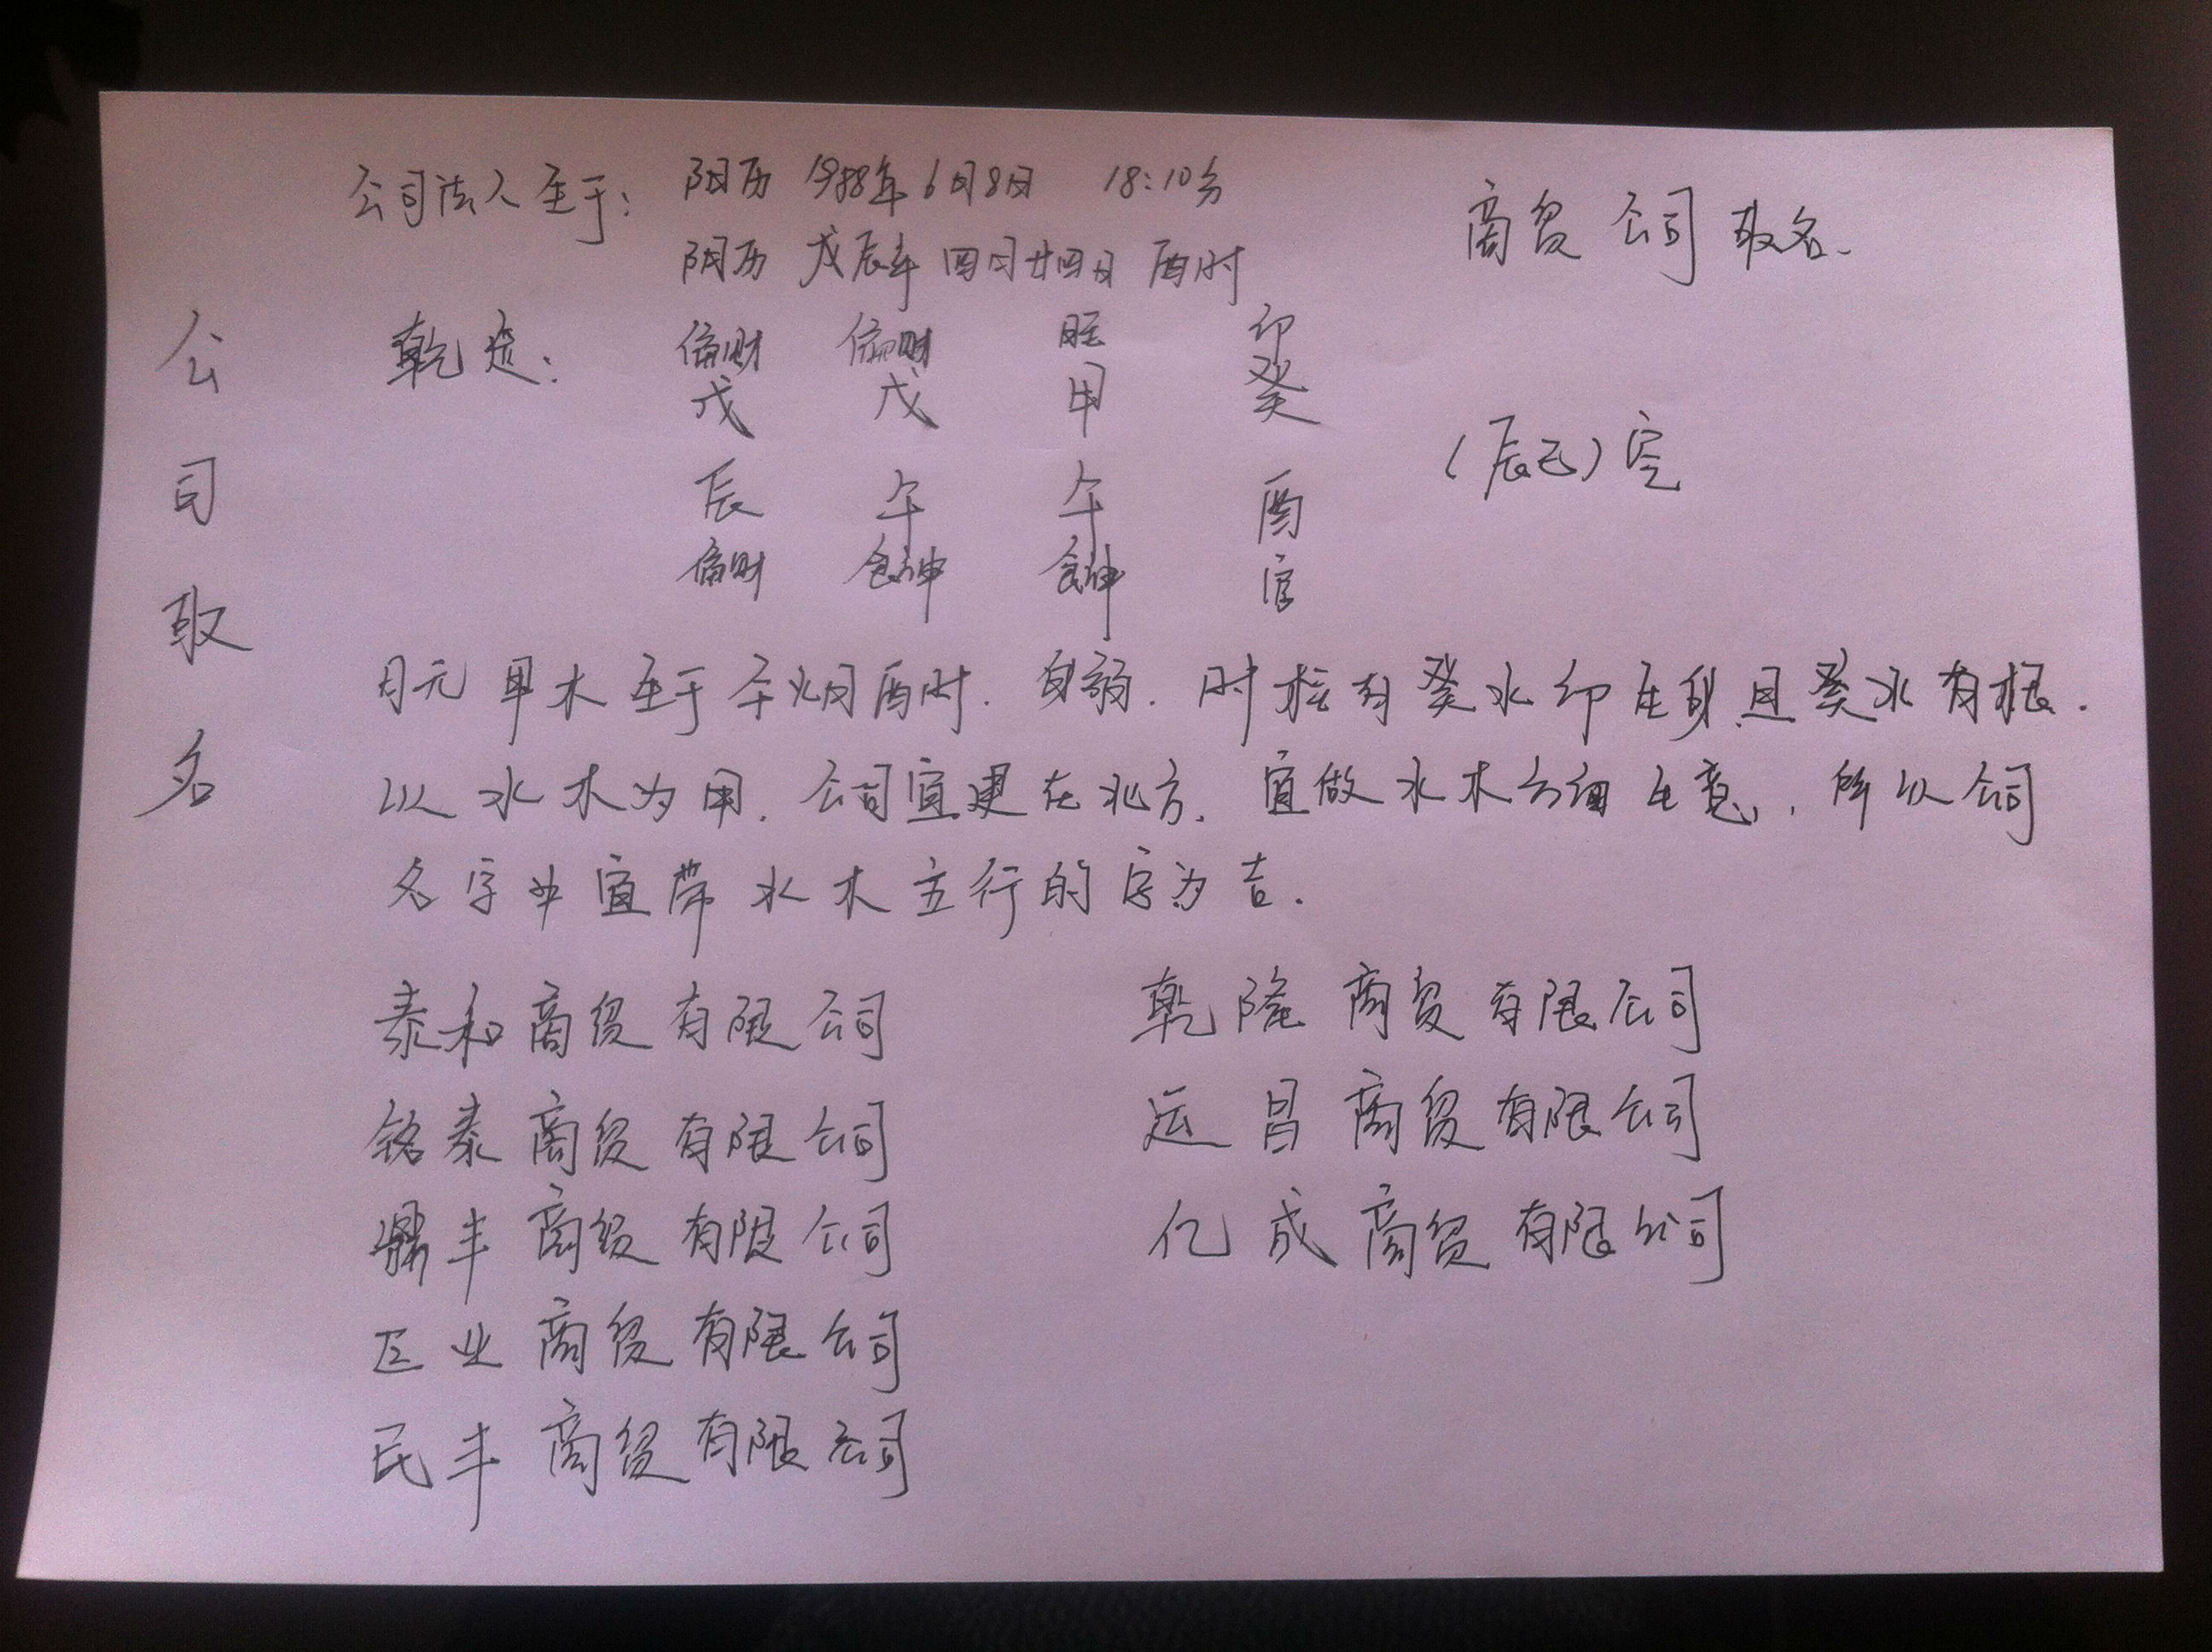 公司取名
公司法人生于： 阳历 1988年6月8日 18:10分
阴历 戊辰年 四月廿四日 酉时
商贸公司取名.
乾造： 偏财 偏财 日主 印
戊 戊 甲 癸
辰 午 午 酉 （辰巳）空
偏财 食神 食神 官
日元甲木生于午火月酉时. 身弱. 时柱有癸水印生身且癸水有根.
以水木为用. 公司宜建在北方. 宜做水木方面生意, 所以公司
名字中宜带水木五行的字为吉.
泰和商贸有限公司 乾隆商贸有限公司
铭泰商贸有限公司 运昌商贸有限公司
鼎丰商贸有限公司 亿成商贸有限公司
巨业商贸有限公司
民丰商贸有限公司